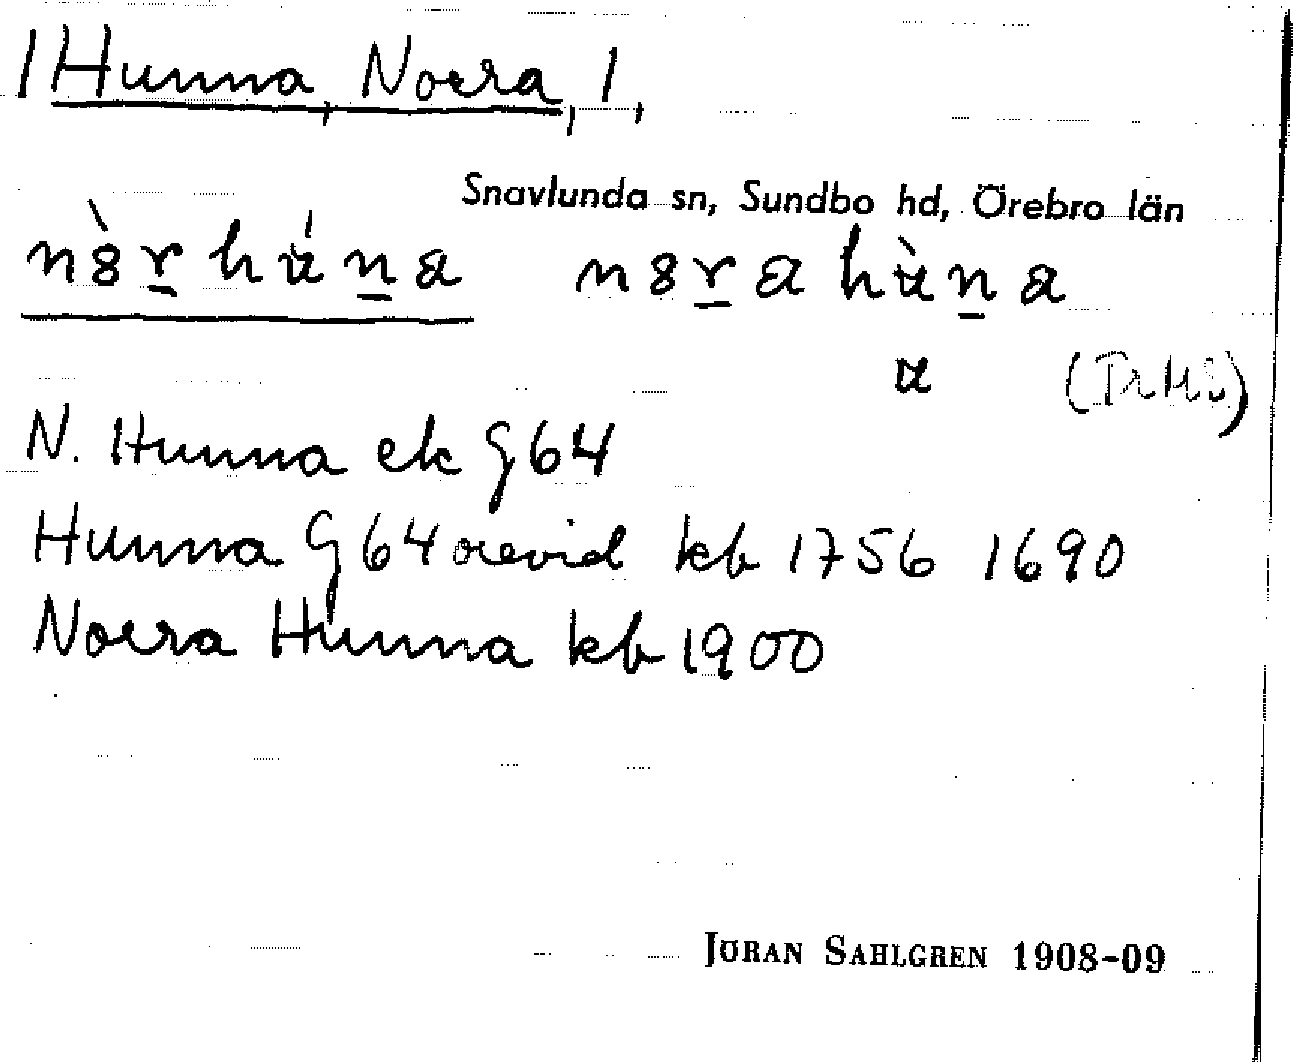 1 Hunna, Norra, 1,
Snavlunda sn, Sundbo hd, Örebro län
n8̀r̲ hu̇́n̲a n8r̲a hu̇̀n̲a
u
N. Hunna ek G64
Hunna G64 revid kb 1756 1690
Norra Hunna kb 1900
JÖRAN SAHLGREN 1908-09